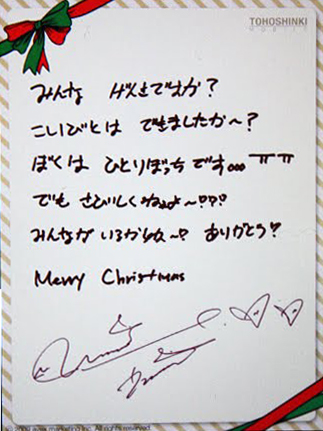 TOHOSHINKI
MOBILE
みんな げんきですか?
こいびとは できましたか〜?
ぼくは ひとりぼっちです。。。ㅠㅠ
でも さびしくねぇよ〜???
みんなが いるからね〜? ありがとう?
Merry Christmas
All rights reserved